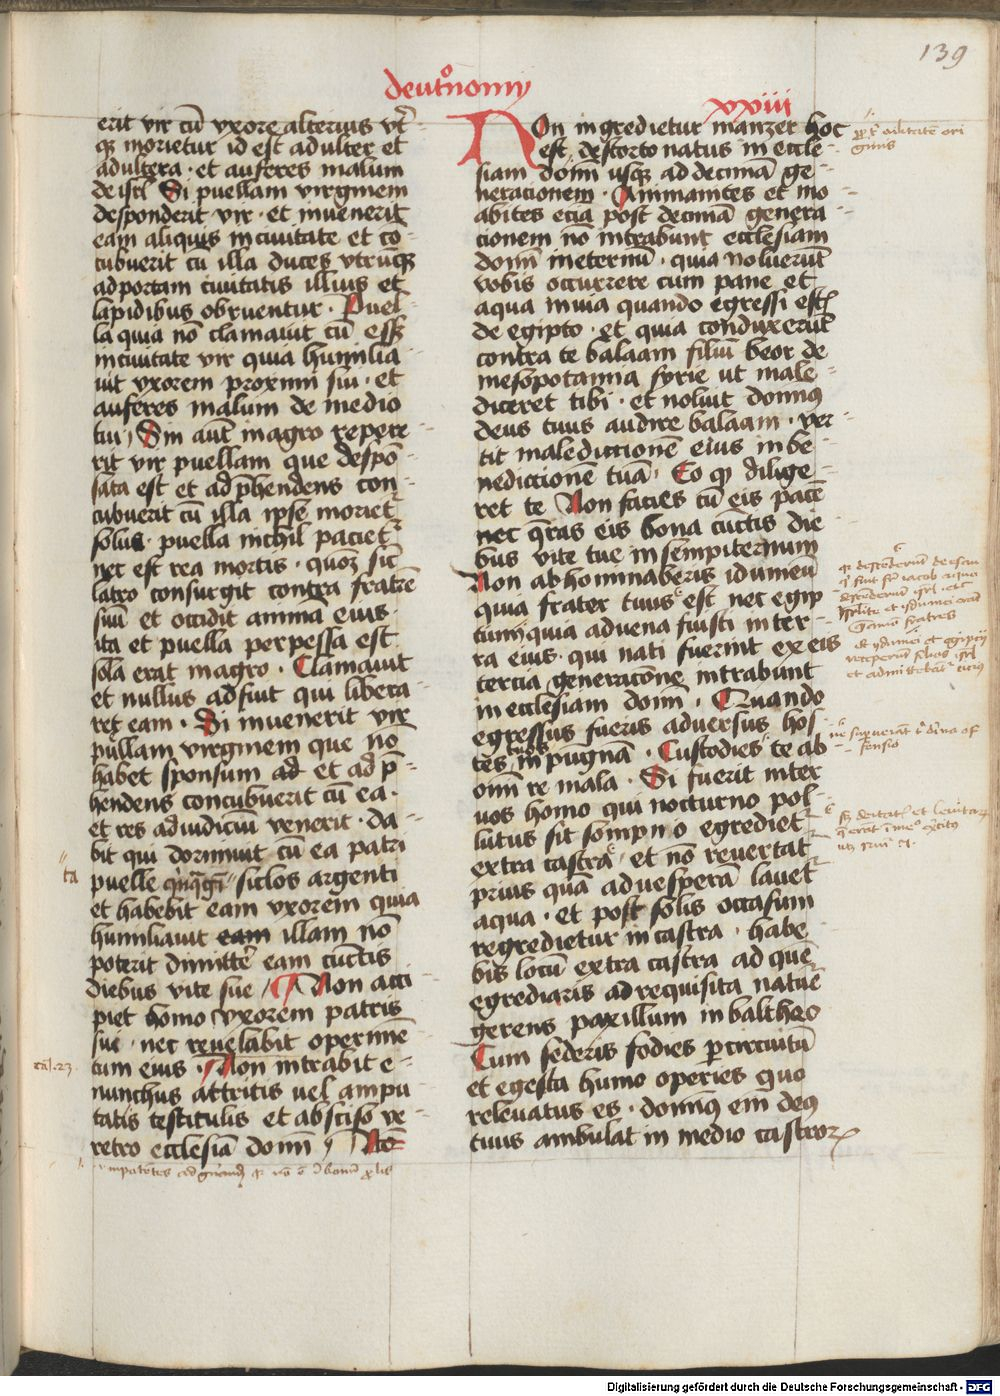 139
deut'onomy
xxiii
erit vir cū vxore alterius vt'
q3 morietur id est adulter et
adultera · et auferes malum
de isrl Si puellam virginem
desponderit vir · et inuenerit
eam aliquis in ciuitate et co-
cubuerit cū illa duces vtrūq3
ad portam ciuitatis illius et
lapidibus obruentur · Puel-
la quia nō clamauit cū ess3
in ciuitate vir quia humilia-
uit vxorem proximi sui · et
auferes malum de medio
tui Sin aut in agro repere-
rit vir puellam que despō-
sata est et adp̄hendens con-
cubuerit cū illa ipse moriet
solus · puella nichil paciet
nec est rea mortis · quo3 sic
latro consurgit contra fratrē
suū et occidit animā eius ·
ita et puella perpessa est
sola erat in agro · Clamauit
et nullus adfuit qui libera-
ret eam · Si inuenerit vir
puellam virginem que nō
habet sponsum ad et adp̄-
hendens concubuerit cū ea ·
et res ad iudiciū venerit · da-
bit qui dormiuit cū ea patri
puelle siclos argenti
ta
et habebit eam vxorem quia
humiliauit eam illam nō
poterit dimittere eam cunctis
diebus vite sue Non acci-
piet homo vxorem patris
sui · nec reuelabit operimē-
tum eius · Non intrabit e-
nunchus attritis uel ampu-
tatis testitulis et absciso ve-
retro ecclesiā domī Nō
NOn ingredietur manzer hoc
est de scorto natus in eccle-
siam domī usq3 ad decimā ge-
neracionem · Ammanites et mo-
abites eciā post decimā genera-
cionem nō intrabunt ecclesiam
domī in eternū · quia noluerūt
vobis occurrere cum pane et
aqua in uia quando egressi est
de egipto · et quia conduxerūt
contra te balaam filiū beor de
mesopotamia syrie ut male-
diceret tibi · et noluit dominus
deus tuus audire balaam · ver-
tit maledictionē eius in be-
nedictionē tuā · Eo q dilige-
ret te Non facies cū eis pacē
nec q̄ras eis bona cūctis die-
bus vite tue in sempiternum
Non abhominaberis idumeū
quia frater tuus est nec egip
tium quia aduena fuisti in ter-
ra eius · qui nati fuerint ex eis
tercia generacōne intrabunt
in ecclesiam domī · Quando
egressus fueris aduersus hos-
tes tuos in pugnā · Custodies te ab
omī re mala · Si fuerit inter
uos homo qui nocturno pol-
lutus sit sompno egrediet
extra castra et nō reuertat
prius quā ad vesperā lauet
aqua · et post solis occasum
regredietur in castra · habe
bis locū extra castra ad quē
egrediaris ad requisita nature
gerens paxillum in baltheo
Cum sederis fodies p circuitū
et egesta humo operies quo
releuatus es · domin9 em deus
tuus ambulat in medio castror
Digitalisierung gefördert durch die Deutsche Forschungsgemeinschaft - DFG